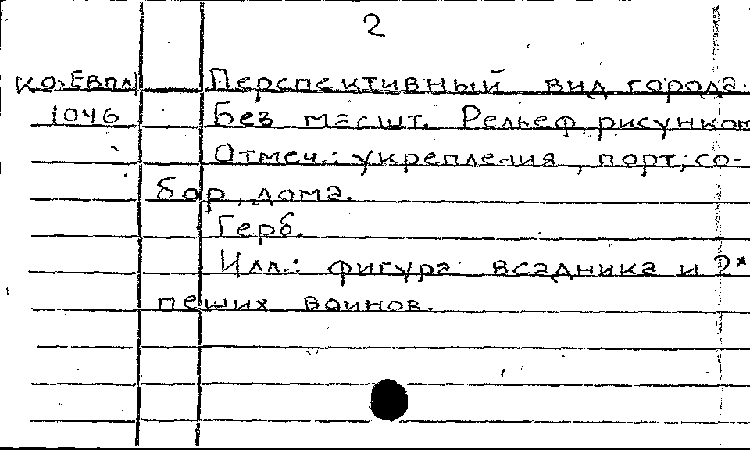 2
К0.Евпл Перспективный вид города.
1046 Без масшт. Рельеф рисунком
Отмеч.: укрепления, порт, со-
бор, дома.
Герб.
Илл.: фигура всадника и 2х
пеших воинов.